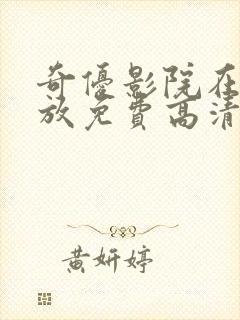 奇優影院在
放免費高清
黄妍婷